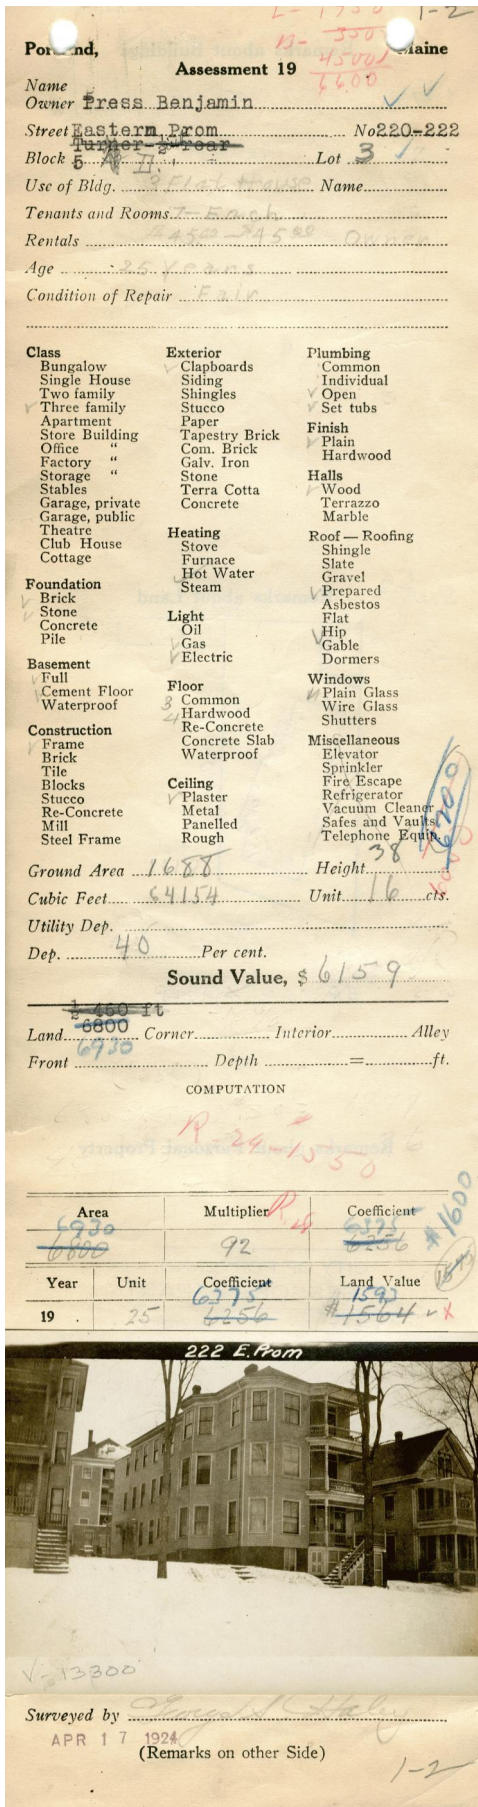 1-2
L- 1750
3500
B- 45001
6600
Portland, Maine
Assessment 19
Name
Owner Press Benjamin
Street Eastern Prom No 220-222
Turner-½-rear
Block 5 A II Lot 3
Use of Bldg. 3 Flat House Name
Tenants and Rooms 7-Each
Rentals $45.00 - $45.00 Owner
Age 25 Years
Condition of Repair Fair
Class
Bungalow
Single House
Two family
✓ Three family
Apartment
Store Building
Office "
Factory "
Storage "
Stables
Garage, private
Garage, public
Theatre
Club House
Cottage
Foundation
✓ Brick
✓ Stone
Concrete
Pile
Basement
✓ Full
✓ Cement Floor
Waterproof
Construction
✓ Frame
Brick
Tile
Blocks
Stucco
Re-Concrete
Mill
Steel Frame
Exterior
✓ Clapboards
Siding
Shingles
Stucco
Paper
Tapestry Brick
Com. Brick
Galv. Iron
Stone
Terra Cotta
Concrete
Heating
Stove
Furnace
✓ Hot Water
Steam
Light
Oil
✓ Gas
✓ Electric
Floor
3 Common
4 Hardwood
Re-Concrete
Concrete Slab
Waterproof
Ceiling
✓ Plaster
Metal
Panelled
Rough
Plumbing
Common
Individual
✓ Open
✓ Set tubs
Finish
✓ Plain
Hardwood
Halls
✓ Wood
Terrazzo
Marble
Roof — Roofing
Shingle
Slate
Gravel
✓ Prepared
Asbestos
Flat
✓ Hip
Gable
Dormers
Windows
Plain Glass
Wire Glass
Shutters
Miscellaneous
Elevator
Sprinkler
Fire Escape
Refrigerator
Vacuum Cleaner
Safes and Vaults
Telephone Equip.
6200
Ground Area 1688 Height 38
Cubic Feet 64154 Unit 16 cts.
Utility Dep.
Dep. 40 Per cent.
Sound Value, $ 6159
½ 460 ft
6800
Land 6930 Corner Interior Alley
Front Depth = ft.
COMPUTATION
R-29 1550
Area Multiplier Coefficient
6930 6375
6800 92 6256
$1600
Year Unit Coefficient Land Value
6375 1593
19 . 25 6256 $1564 ✓ x
222 E. Prom
V-13300
Surveyed by
APR 17 1924
(Remarks on other Side)
1-2